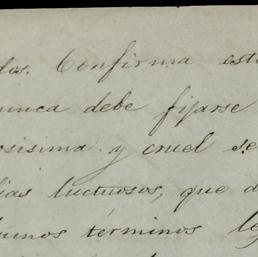 dos. Confirma est
nunca debe fijarse
osisima y cruel se
dias luctuosos, que d
lgunos términos le